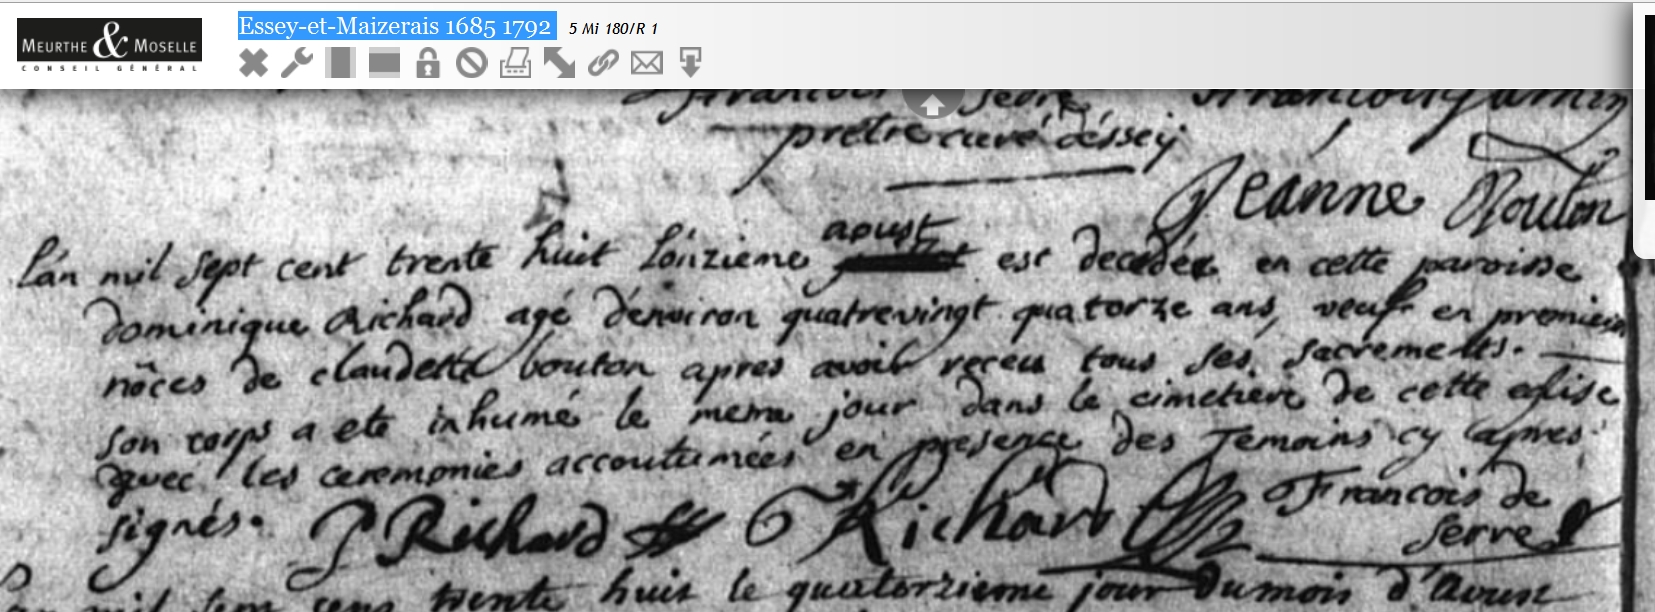 MEURTHE & MOSELLE
CONSEIL GÉNÉRAL
Essey-et-Maizerais 1685 1792 5 Mi 180/R 1
françois serre
pretre curé d'éssey
Jeanne Bouton
aoust
l'án mil sept cent trente huit l'ónzieme est decedée en cette paroisse
dominique Richard agé d'environ quatrevingt quatorze ans, veuf en premieres
nôces de claudette bouton apres avoir receu tous ses sacrements.
son corps a eté inhumé le meme jour dans le cimetiere de cette eglise
avec les ceremonies accoutumées en presence des Temoins cy apres
signés. P Richard Richard François de
serre
mil sept cens trente huit le quatorzieme jour du mois d'Aoust